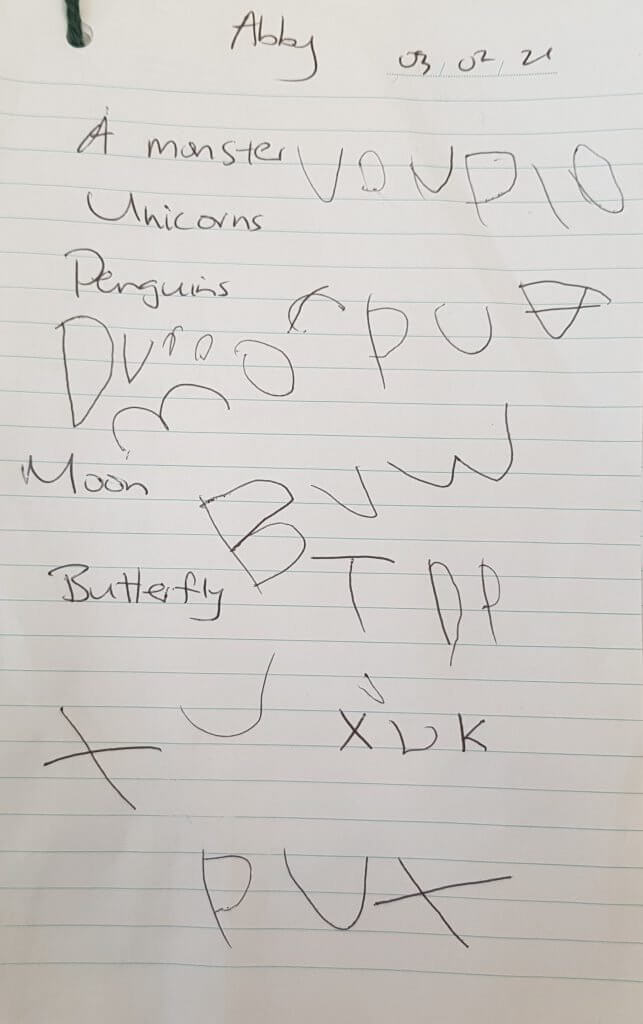 Abby 03,02,21
A monster V D N P I O
Unicorns
Penguins P U
D U r o O
Moon B U W
Butterfly T D P
X J X U K
P U X